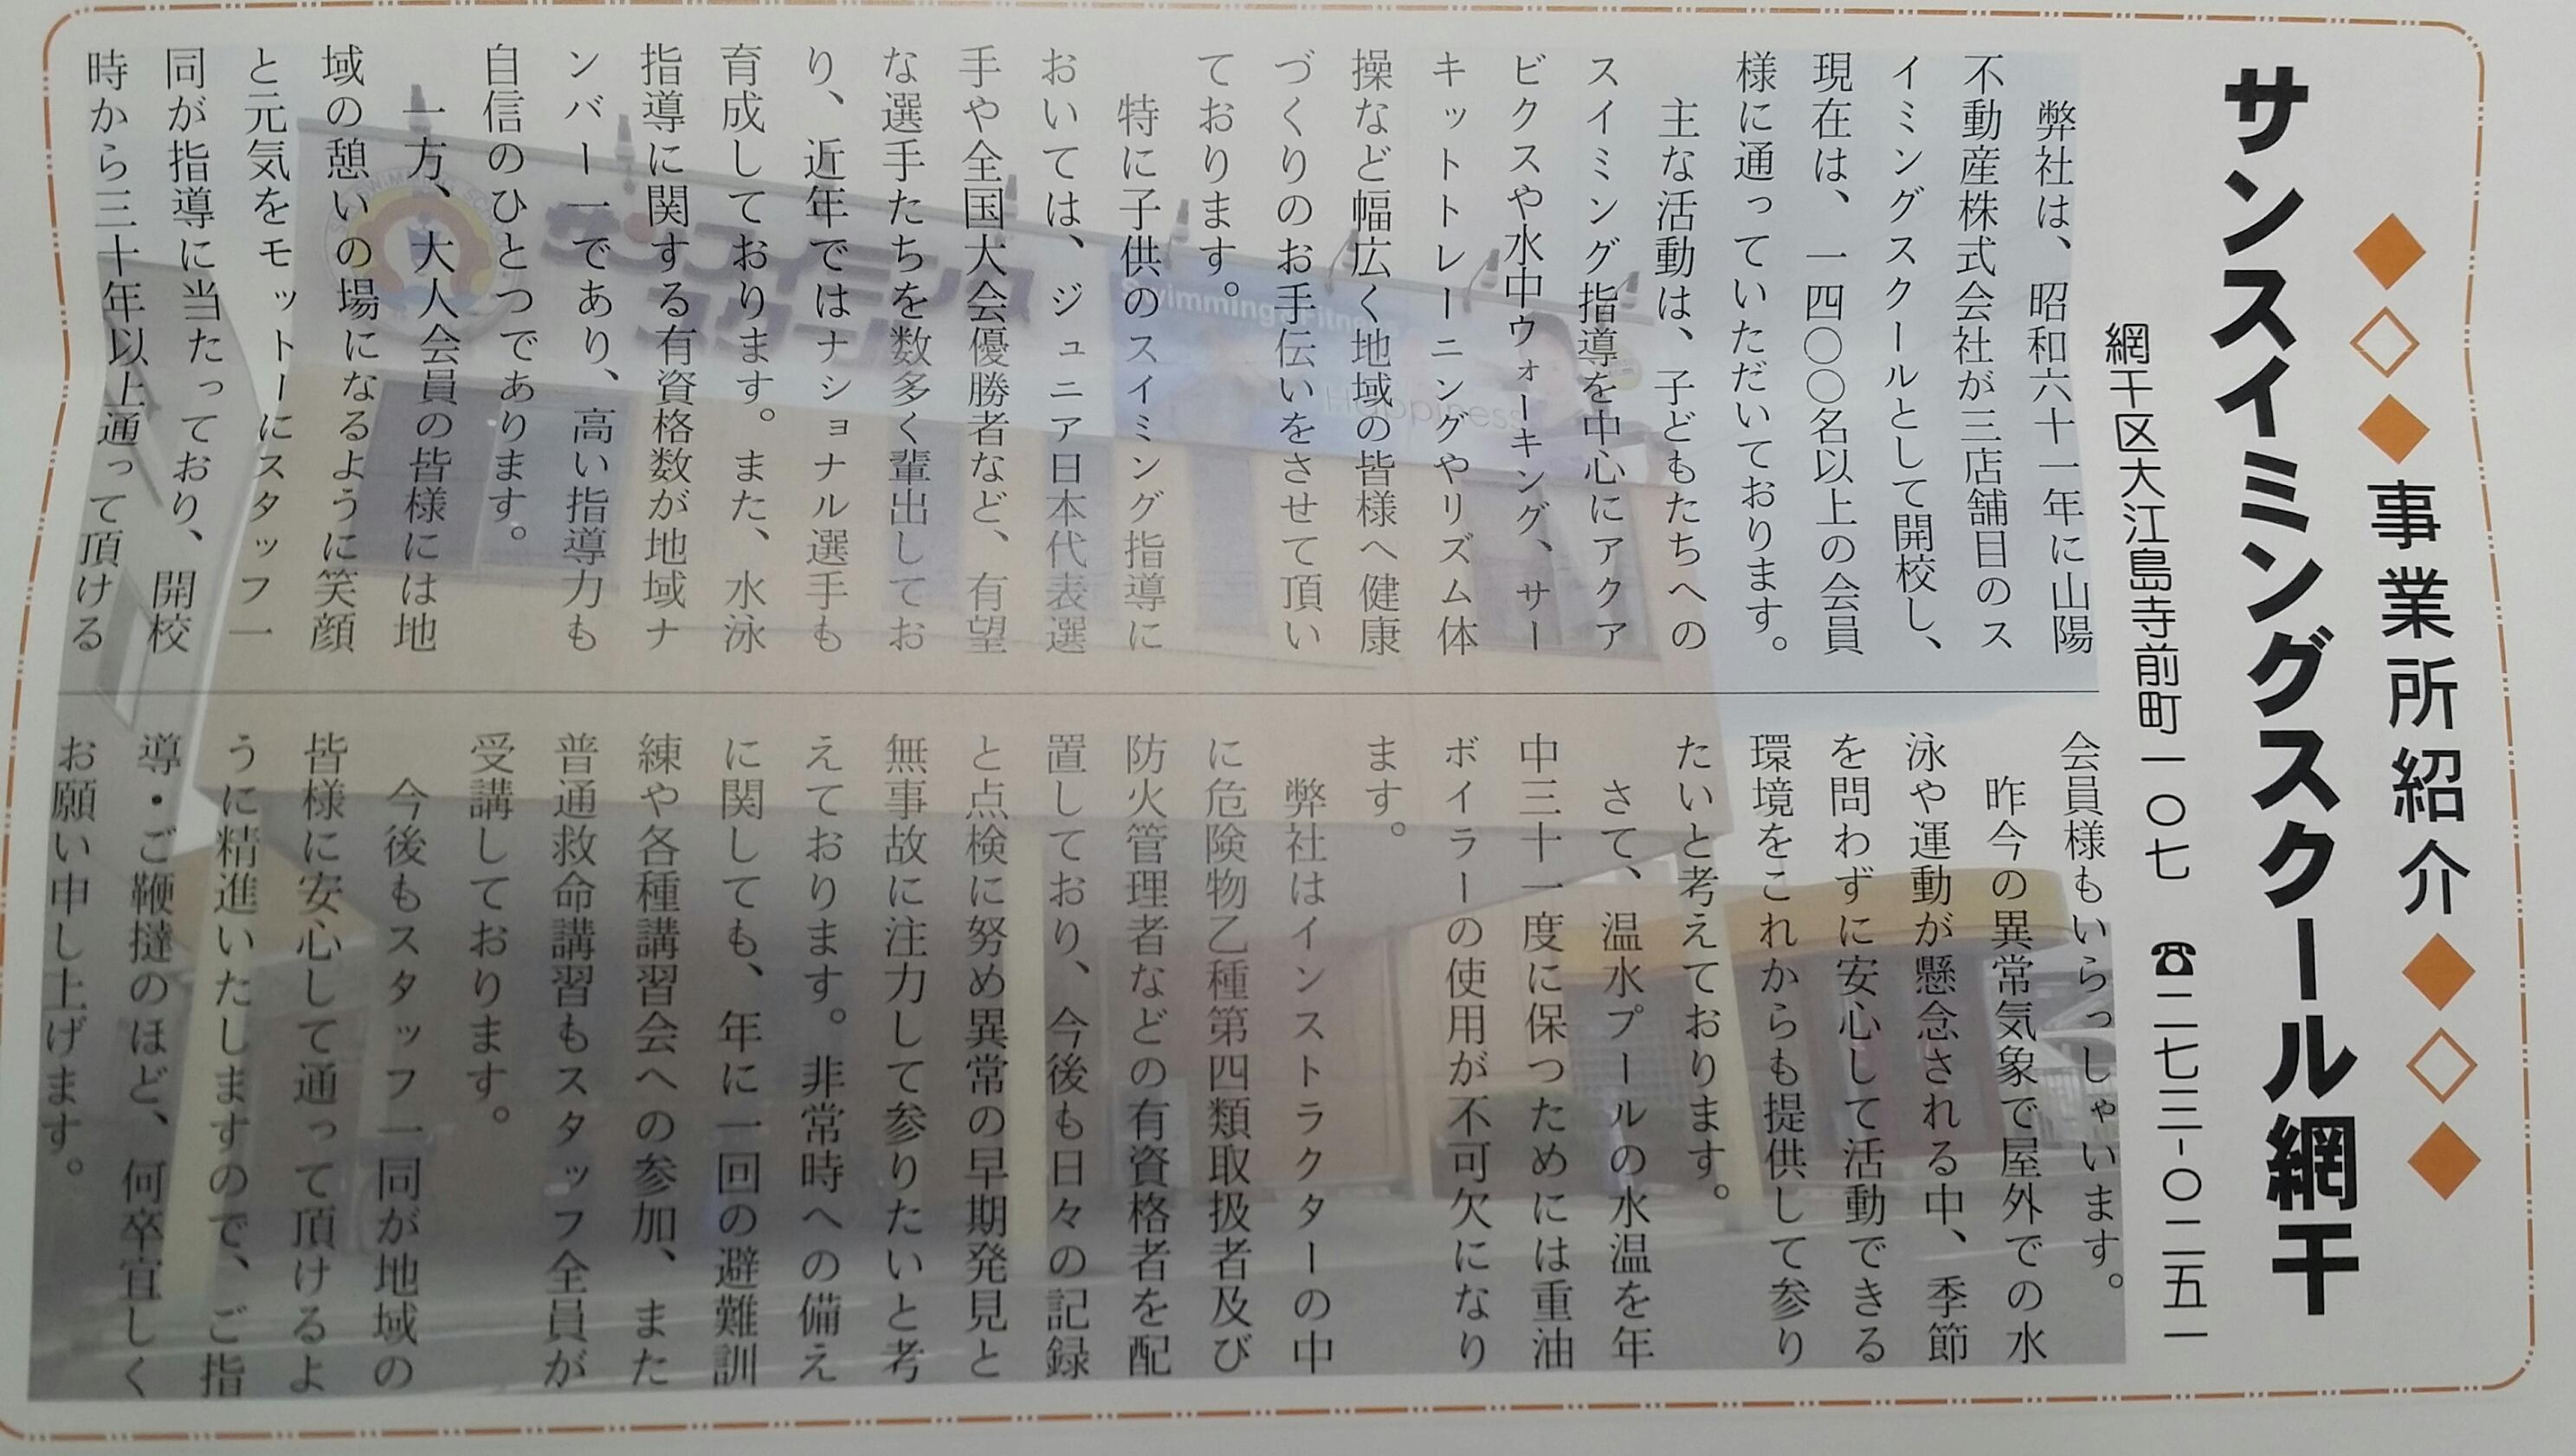 ◆◇◆事業所紹介◆◇◆
サンスイミングスクール網干
網干区大江島寺前町一〇七 ☎二七三-〇二五一
弊社は、昭和六十一年に山陽
不動産株式会社が三店舗目のス
イミングスクールとして開校し、
現在は、一四〇〇名以上の会員
様に通っていただいております。
主な活動は、子どもたちへの
スイミング指導を中心にアクア
ビクスや水中ウォーキング、サー
キットトレーニングやリズム体
操など幅広く地域の皆様へ健康
づくりのお手伝いをさせて頂い
ております。
特に子供のスイミング指導に
おいては、ジュニア日本代表選
手や全国大会優勝者など、有望
な選手たちを数多く輩出してお
り、近年ではナショナル選手も
育成しております。また、水泳
指導に関する有資格数が地域ナ
ンバー一であり、高い指導力も
自信のひとつであります。
一方、大人会員の皆様には地
域の憩いの場になるように笑顔
と元気をモットーにスタッフ一
同が指導に当たっており、開校
時から三十年以上通って頂ける
会員様もいらっしゃいます。
昨今の異常気象で屋外での水
泳や運動が懸念される中、季節
を問わずに安心して活動できる
環境をこれからも提供して参り
たいと考えております。
さて、温水プールの水温を年
中三十一度に保つためには重油
ボイラーの使用が不可欠になり
ます。
弊社はインストラクターの中
に危険物乙種第四類取扱者及び
防火管理者などの有資格者を配
置しており、今後も日々の記録
と点検に努め異常の早期発見と
無事故に注力して参りたいと考
えております。非常時への備え
に関しても、年に一回の避難訓
練や各種講習会への参加、また
普通救命講習もスタッフ全員が
受講しております。
今後もスタッフ一同が地域の
皆様に安心して通って頂けるよ
うに精進いたしますので、ご指
導・ご鞭撻のほど、何卒宜しく
お願い申し上げます。
サンスイミング
スクール
Swimming&Fitness
Happiness